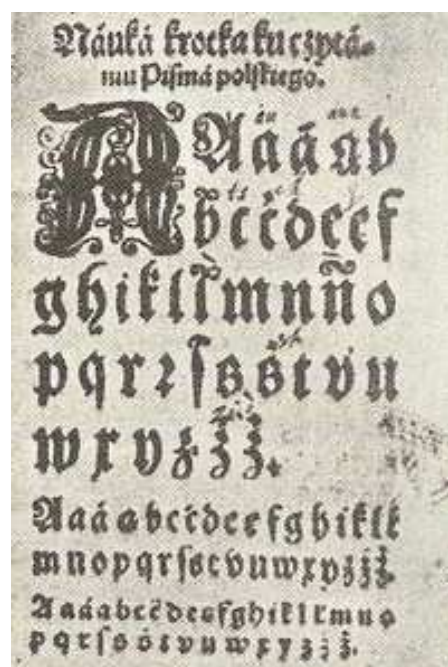 Náuká krotka ku czytá-
niu Pisma polskiego.
A a á ą b
b c ć d e ę f
g h i k l l̀ m n ñ o
p q r ꝛ ſ s ś t v u
w x y z ź ż.
A a á ą b c ć d e ę f g h i k l ł
m n o p q r ſ s ś t v u w x y z ź ż.
A a á ą b c ć d e ę f g h i k l ł m n o
p q r ſ s ś t v u w x y z ź ż.